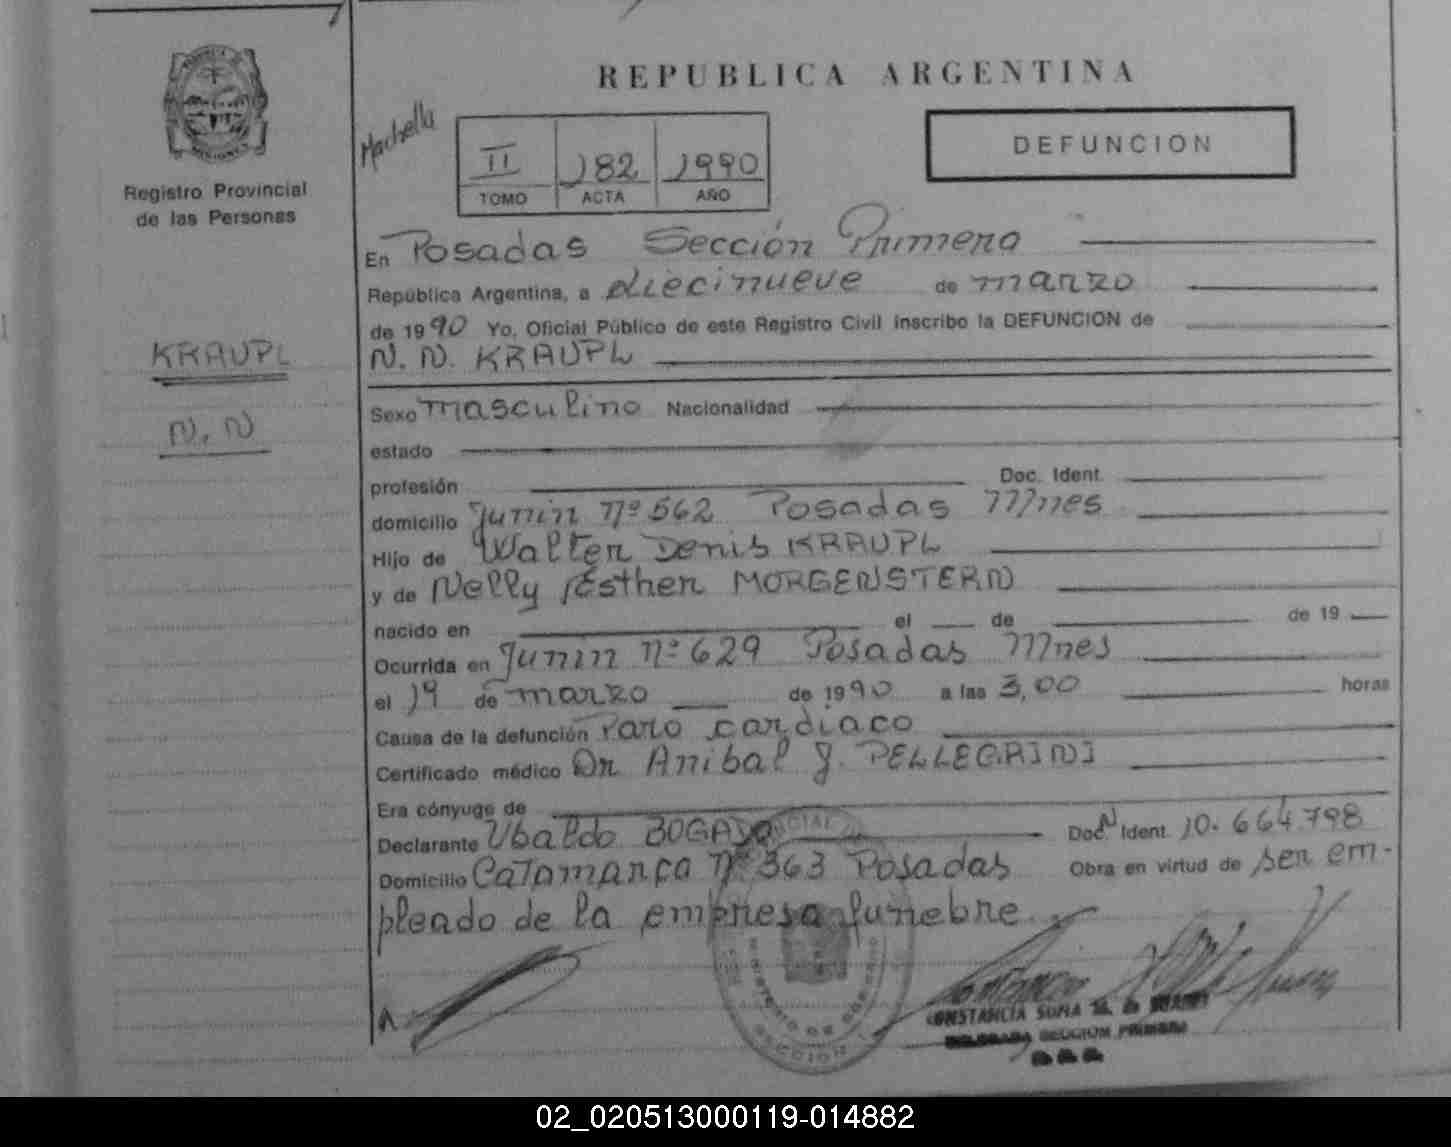 REPUBLICA ARGENTINA
Registro Provincial
de las Personas
Machella
II 182 1990
TOMO ACTA AÑO
DEFUNCION
KRAUPL
N. N
En Posadas Sección Primera
República Argentina, a diecinueve de marzo
de 1990 Yo, Oficial Público de este Registro Civil inscribo la DEFUNCION de
N. N. KRAUPL
Sexo masculino Nacionalidad
estado
profesión Doc. Ident.
domicilio Junin Nº 562 Posadas Mnes
Hijo de Walter Denis KRAUPL
y de Nelly Esther MORGENSTERN
nacido en el de de 19
Ocurrida en Junin nº 629 Posadas Mnes
el 19 de marzo de 1990 a las 3,00 horas
Causa de la defunción Paro cardiaco
Certificado médico Dr Anibal J. PELLEGRINI
Era cónyuge de
Declarante Ubaldo BOGADO Doc N Ident. 10.664.798
Domicilio Catamarca Nº 363 Posadas Obra en virtud de ser em-
pleado de la empresa funebre.
MINISTERIO DE GOBIERNO
SECCION
CONSTANCIA SOFIA M. de
DELEGADA SECCION PRIMERA
02_020513000119-014882